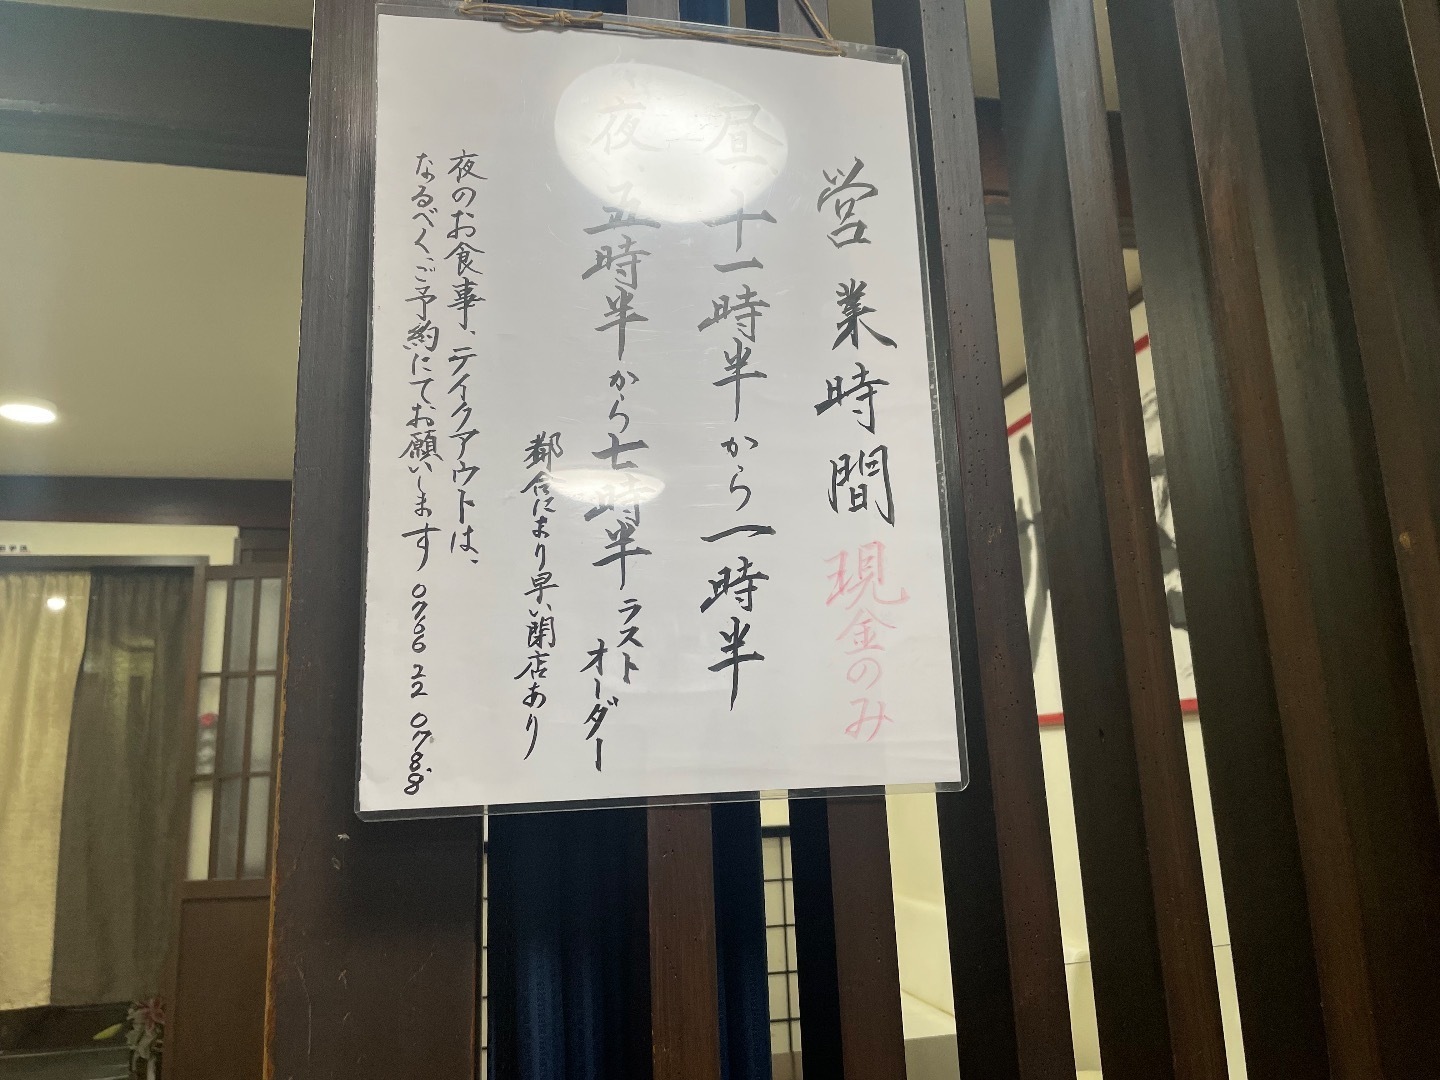 営業時間 現金のみ
昼 十一時半から一時半
夜 五時半から七時半 ラスト
オーダー
都合により早い閉店あり
夜のお食事、テイクアウトは、
なるべく、ご予約にてお願いします 0766 22 0788